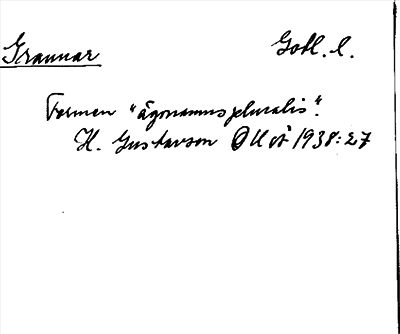 Grannar Gotl. l.
Formen "ägonamns pluralis".
H. Gustavson OUÅ 1938:27